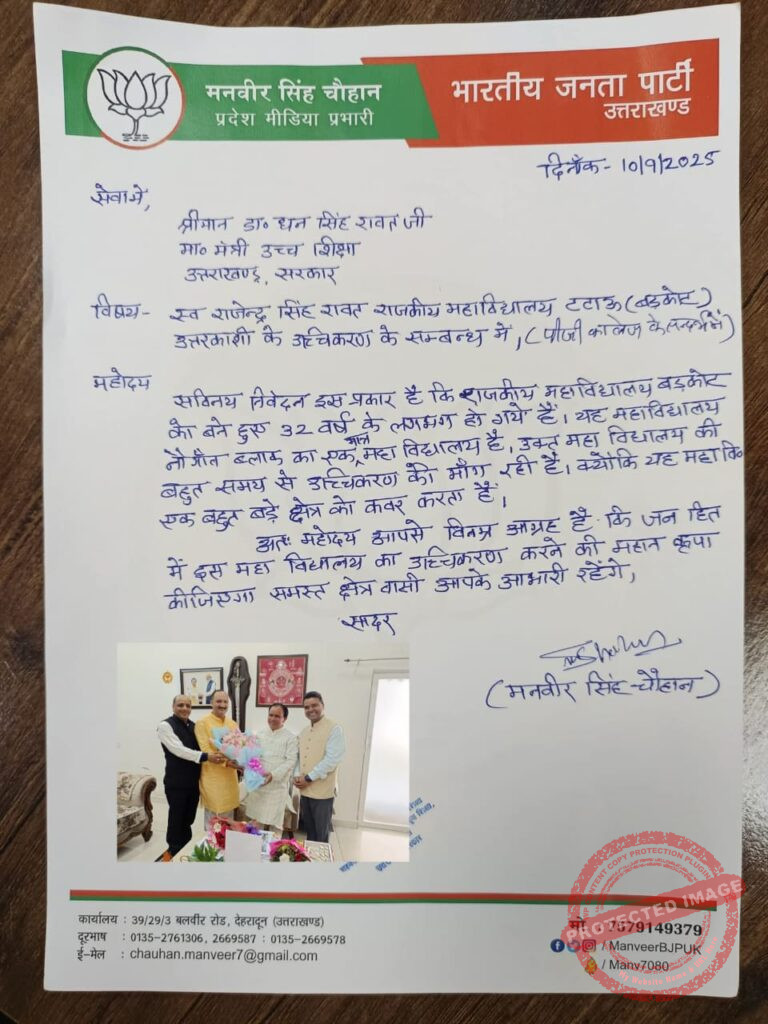 मनवीर सिंह चौहान
प्रदेश मीडिया प्रभारी
भारतीय जनता पार्टी
उत्तराखण्ड
दिनाँक - 10/9/2025
सेवामे,
श्रीमान डा० धन सिंह रावत जी
मा० मंत्री उच्च शिक्षा
उत्तराखण्ड, सरकार
विषय- स्व राजेन्द्र सिंह रावत राजकीय महाविधालय टटाऊ (बड़कोट)
उत्तरकाशी के उच्चिकरण के सम्बन्ध मे, (पीजी कालेज के सन्दर्भ में)
महोदय
सविनय निवेदन इस प्रकार है कि राजकीय महाविधालय बड़कोट
को बने हुए 32 वर्ष के लगभग हो गये हैं। यह महाविधालय
नौगाँव ब्लाक का एक मात्र महा विधालय है, उक्त महा विधालय की
बहुत समय से उच्चिकरण की माँग रही है। क्योंकि यह महा वि०
एक बहुत बड़े क्षेत्र को कवर करता है।
अतः महोदय आपसे विनम्र आग्रह है कि जन हित
में इस महा विधालय का उच्चिकरण करने की महान कृपा
कीजिएगा समस्त क्षेत्र वासी आपके आभारी रहेंगे,
सादर
(मनवीर सिंह चौहान)
कार्यालय : 39/29/3 बलवीर रोड, देहरादून (उत्तराखण्ड)
दूरभाष : 0135-2761306, 2669587 : 0135-2669578
ई-मेल : chauhan.manveer7@gmail.com
मो. 7579149379
/ ManveerBJPUK
/ Manv7080
PROTECTED IMAGE